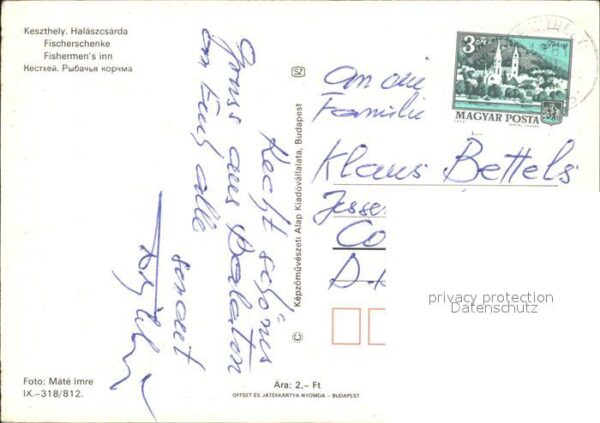 Keszthely. Halászcsárda
Fischerschenke
Fishermen's inn
Кестхей. Рыбачья корчма
3 Ft
MAGYAR POSTA
An die
Familie
Klaus Bettels
Jesse
Co
D.
Recht schönes
Gruss aus Balaton
an Euch alle
sendet
Képzőművészeti Alap Kiadóvállalata, Budapest
privacy protection
Datenschutz
Foto: Máté Imre
IX.–318/812.
Ára: 2,– Ft
OFFSET ÉS JÁTÉKKÁRTYA NYOMDA – BUDAPEST